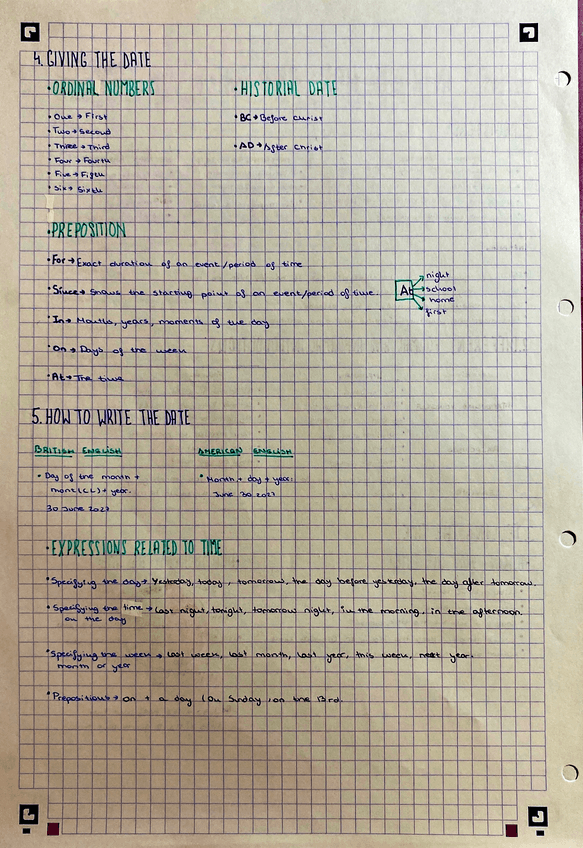 4. GIVING THE DATE
• ORDINAL NUMBERS
• One → First
• Two → Second
• Three → Third
• Four → Fourth
• Five → Fifth
• Six → Sixth
• HISTORIAL DATE
• BC → Before Christ
• AD → After Christ
• PREPOSITION
• For → Exact duration of an event/period of time
• Since → Shows the starting point of an event/period of time.
• In → Months, years, moments of the day
• On → Days of the week
• At → The time
At
night
school
home
first
5. HOW TO WRITE THE DATE
BRITISH ENGLISH
• Day of the month +
month (CL) + year.
30 June
AMERICAN ENGLISH
• Month + day + year:
June 30
• EXPRESSIONS RELATED TO TIME
• Specifying the day → Yesterday, today, tomorrow, the day before yesterday, the day after tomorrow.
• Specifying the time → Last night, tonight, tomorrow night, in the morning, in the afternoon.
on the day
• Specifying the week → Last week, last month, last year, this week, next year.
month or year
• Prepositions → on + a day (On Sunday, on the